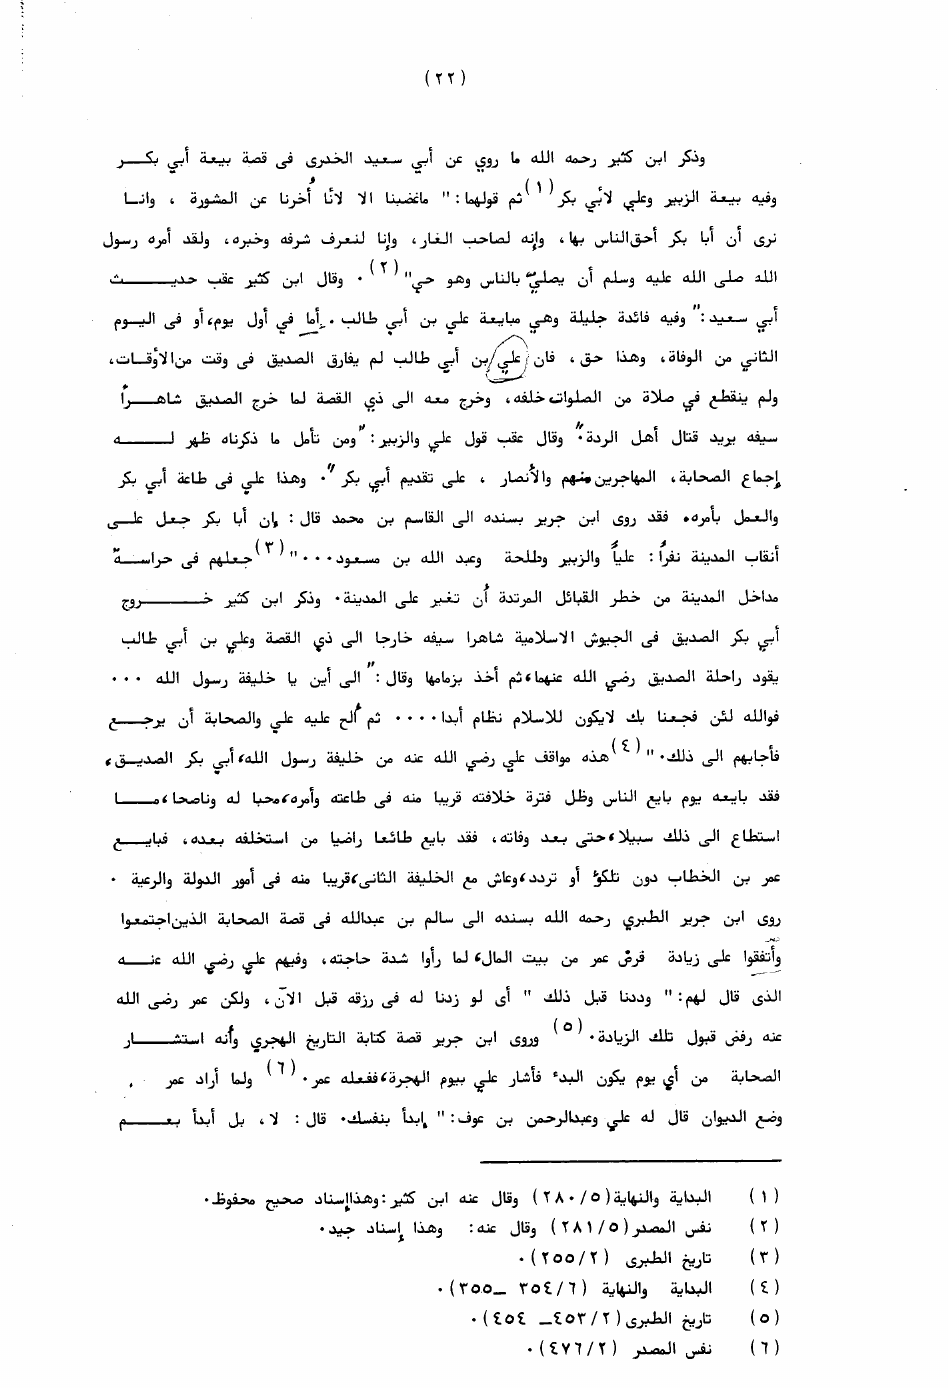 (٢٢)
وذكر ابن كثير رحمه الله ما روي عن أبي سعيد الخدرى فى قصة بيعة أبي بكـــر
وفيه بيعة الزبير وعلي لأبي بكر (١) ثم قولهما: " ماغضبنا الا لأنا أُخرنا عن المشورة ، وانـا
نرى أن أبا بكر أحق الناس بها، وإنه لصاحب الغار، وإنا لنعرف شرفه وخبره، ولقد أمره رسول
الله صلى الله عليه وسلم أن يصلي بالناس وهو حي" (٢) ٠ وقال ابن كثير عقب حديـــث
أبي سعيد: " وفيه فائدة جليلة وهي مبايعة علي بن أبي طالب ٠ أما في أول يوم، أو فى اليـوم
الثاني من الوفاة، وهذا حق، فان علي بن أبي طالب لم يفارق الصديق فى وقت من الأوقـات،
ولم ينقطع في صلاة من الصلوات خلفه، وخرج معه الى ذي القصة لما خرج الصديق شاهـــراً
سيفه يريد قتال أهل الردة" ٠ وقال عقب قول علي والزبير: "ومن تأمل ما ذكرناه ظهر لـــــه
إجماع الصحابة، المهاجرين منهم والأنصار ، على تقديم أبي بكر " ٠ وهذا علي فى طاعة أبي بكر
والعمل بأمره، فقد روى ابن جرير بسنده الى القاسم بن محمد قال : إن أبا بكر جعل علـى
أنقاب المدينة نفراً : علياً والزبير وطلحة وعبد الله بن مسعود٠٠٠ " (٣) جعلهم فى حراســة
مداخل المدينة من خطر القبائل المرتدة أن تغير على المدينة٠ وذكر ابن كثير خـــــروج
أبي بكر الصديق فى الجيوش الاسلامية شاهرا سيفه خارجا الى ذي القصة وعلي بن أبي طالب
يقود راحلة الصديق رضي الله عنهما، ثم أخذ بزمامها وقال : " الى أين يا خليفة رسول الله ٠٠٠
فوالله لئن فجعنا بك لايكون للاسلام نظام أبدا٠٠٠٠ ثم ألح عليه علي والصحابة أن يرجـــع
فأجابهم الى ذلك٠ " (٤) هذه مواقف علي رضي الله عنه من خليفة رسول الله، أبي بكر الصديـق،
فقد بايعه يوم بايع الناس وظل فترة خلافته قريبا منه فى طاعته وأمره، محبا له وناصحا، مـــا
استطاع الى ذلك سبيلا، حتى بعد وفاته، فقد بايع طائعا راضيا من استخلفه بعده، فبايـــع
عمر بن الخطاب دون تلكؤ أو تردد، وعاش مع الخليفة الثانى، قريبا منه فى أمور الدولة والرعية ٠
روى ابن جرير الطبري رحمه الله بسنده الى سالم بن عبدالله فى قصة الصحابة الذين اجتمعوا
وأتفقوا على زيادة فرض عمر من بيت المال، لما رأوا شدة حاجته، وفيهم علي رضي الله عنـــه
الذى قال لهم: " وددنا قبل ذلك " أى لو زدنا له فى رزقه قبل الآن، ولكن عمر رضى الله
عنه رفض قبول تلك الزيادة٠ (٥) وروى ابن جرير قصة كتابة التاريخ الهجري وأنه استشـــار
الصحابة من أي يوم يكون البدء فأشار علي بيوم الهجرة، ففعله عمر٠ (٦) ولما أراد عمر
وضع الديوان قال له علي وعبدالرحمن بن عوف: " إبدأ بنفسك٠ قال : لا، بل أبدأ بعـــم
(١) البداية والنهاية (٢٨٠/٥) وقال عنه ابن كثير : وهذا إسناد صحيح محفوظ٠
(٢) نفس المصدر (٢٨١/٥) وقال عنه: وهذا إسناد جيد٠
(٣) تاريخ الطبرى (٢٥٥/٢) ٠
(٤) البداية والنهاية (٣٥٤/٦ ــ ٣٥٥) ٠
(٥) تاريخ الطبرى (٤٥٣/٢ــ ٤٥٤) ٠
(٦) نفس المصدر (٤٧٦/٢) ٠